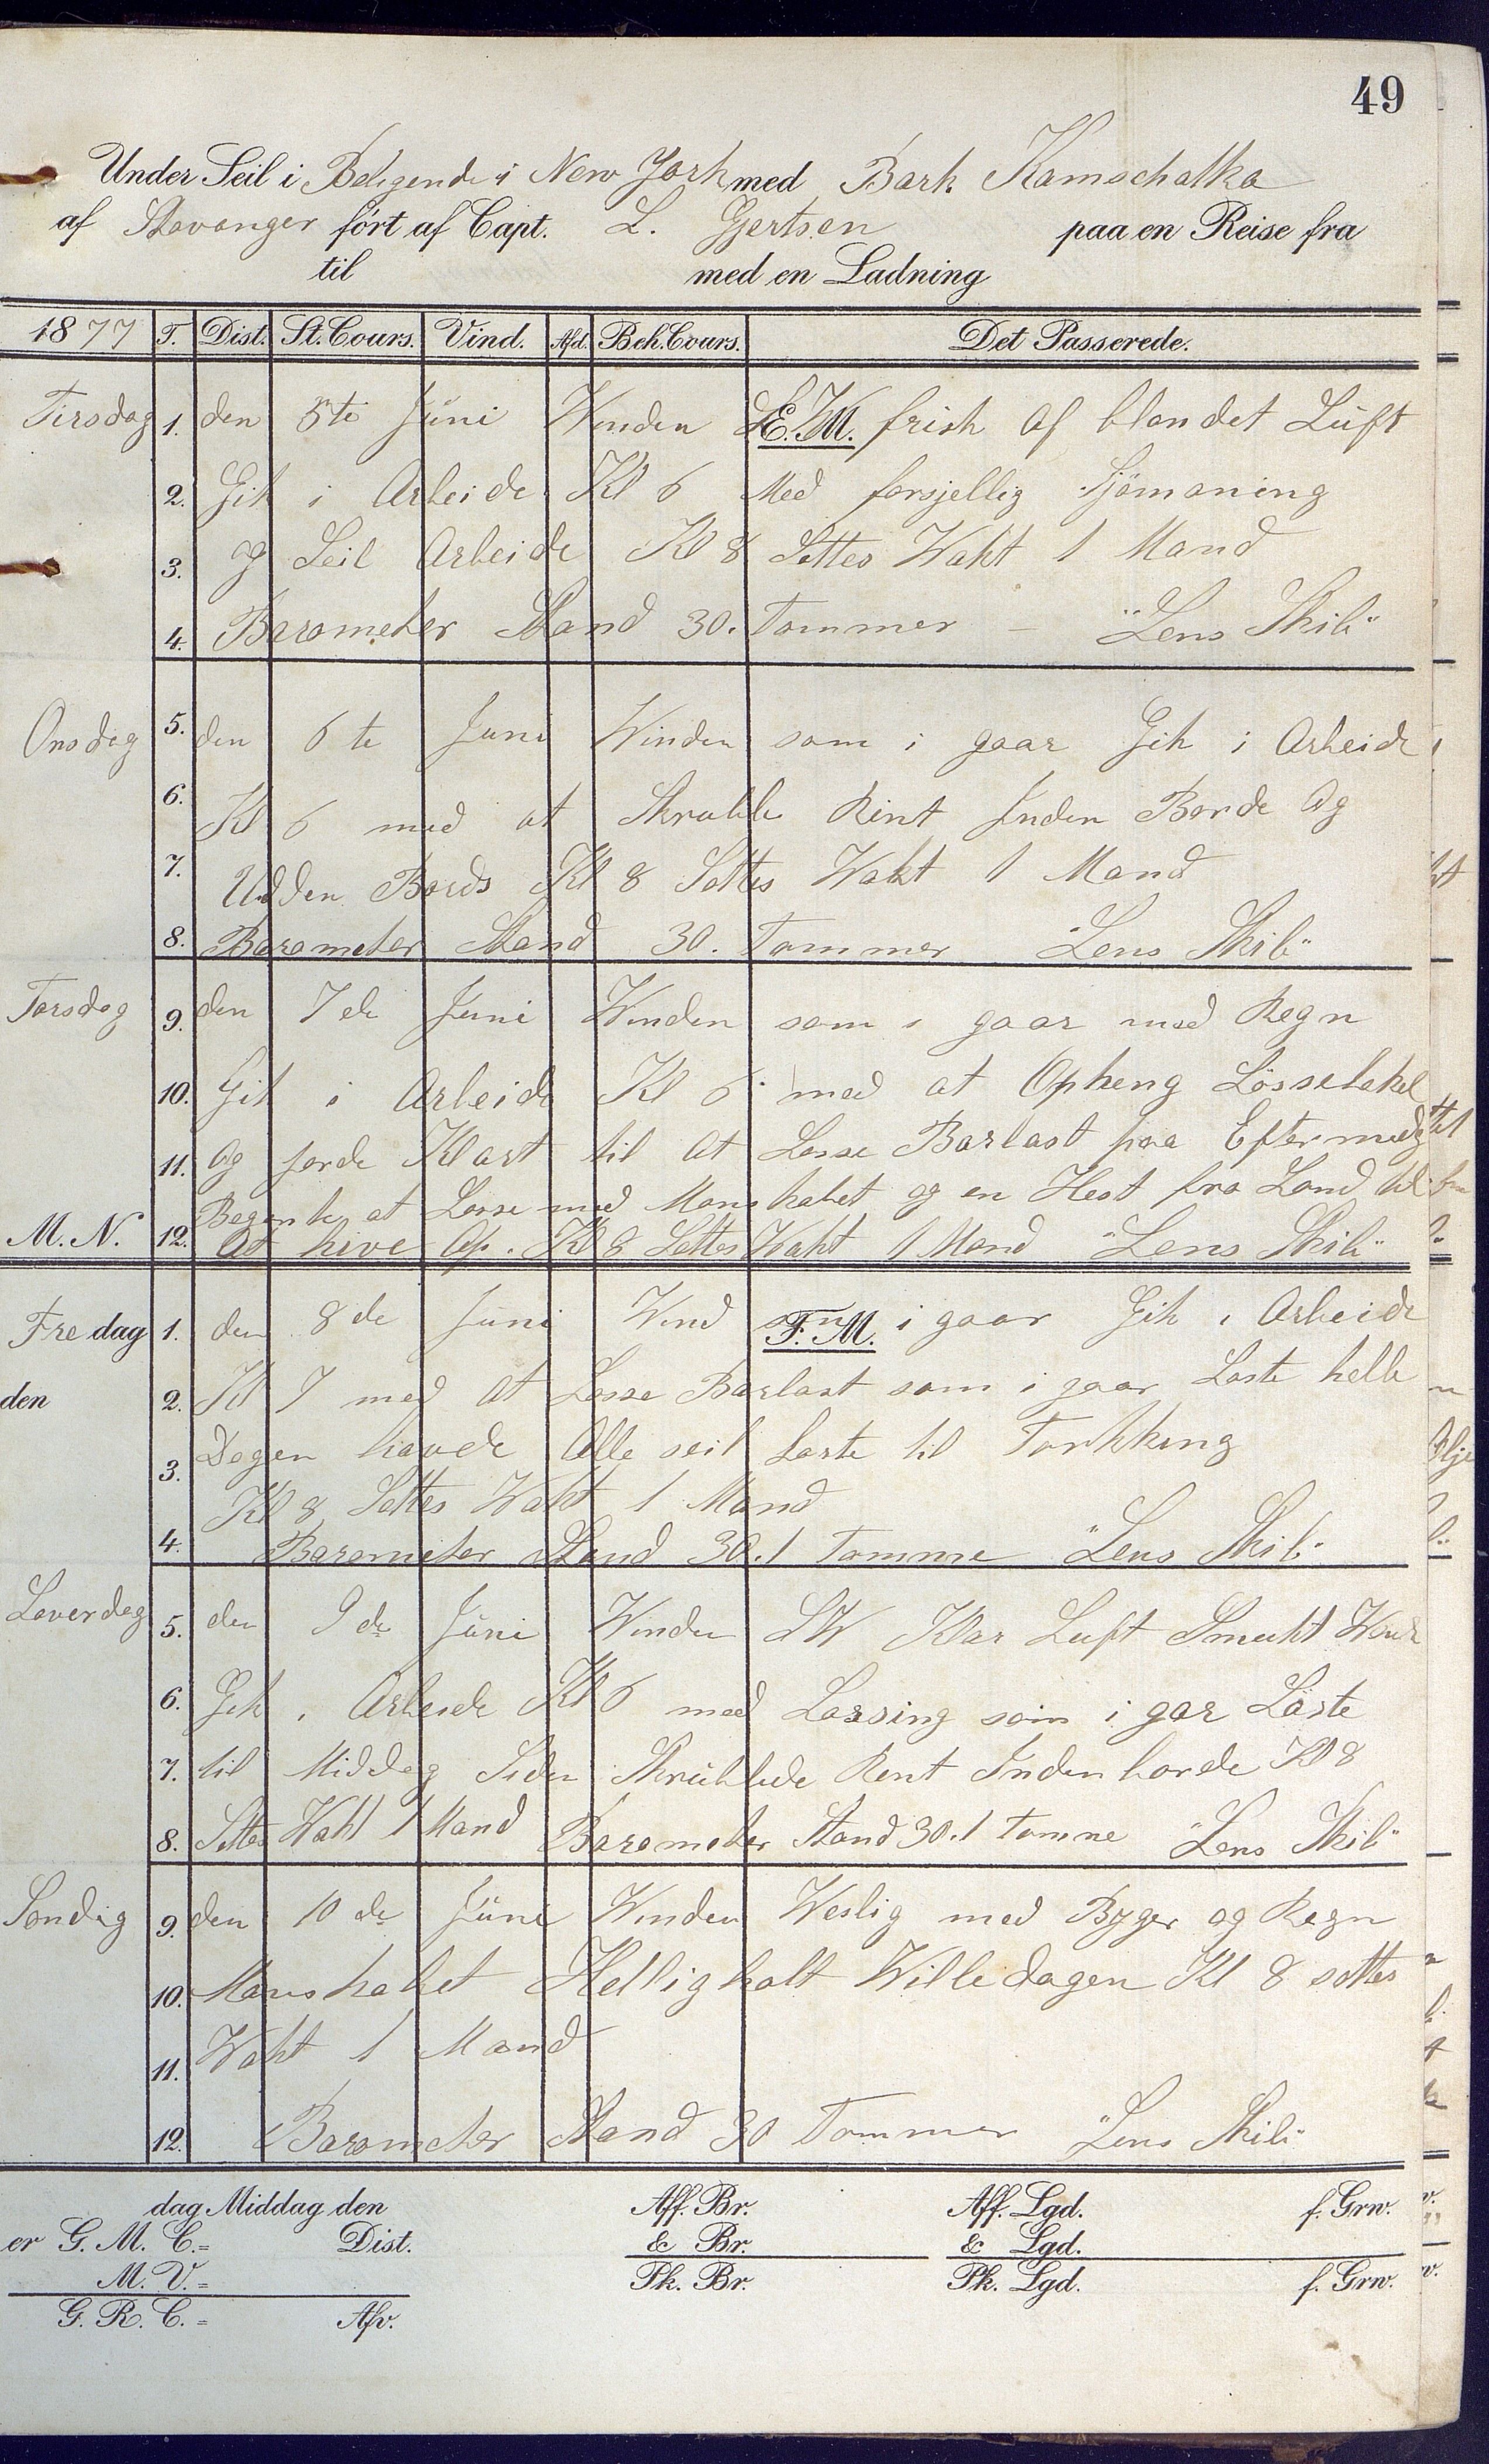 49
Under Seil i Beligende i New York med Bark Kamschatka
af Stavanger fört af Capt. L. Gjertsen paa en Reise fra
til med en Ladning
1877 T. Dist. St. Cours. Vind. Afd. Beh. Cours. Det Passerede.
E. M.
Tirsdag 1. den 5te Juni Winden frisk af blandet Luft
2. Gik i Arbeide Kl 6 Med forsjellig Sjömaning
3. og Seil Arbeide Kl 8 Settes Wakt 1 Mand
4. Barometer Stand 30. Tommer — "Lens Skib"
Onsdag 5. den 6te Juni Winden som i gaar Gik i Arbeide
6. Kl 6 med at Skrubbe Rint Inden Borde Og
7. Udden Bords Kl 8 Settes Wakt 1 Mand
8. Barometer Stand 30. Tommer "Lens Skib"
Torsdag 9. den 7de Juni Winden som i gaar med Regn
10. Gik i Arbeide Kl 6 med at Opheng Lössetakel
11. og jorde Klart til At Losse Barlast paa Eftermidg
Begynte at Losse med Manskabet og en Hest fra Land til
M. N. 12. At hive Op. Kl 8 Settes Wakt 1 Mand "Lens Skib"
F. M.
Fredag 1. den 8de Juni Wind som i gaar Gik i Arbeide
den 2. Kl 7 med At Losse Barlast som i gaar Loste helle
3. Dagen havde Alle seil Loste til Torkking
Kl 8 Settes Wakt 1 Mand
4. Barometer Stand 30.1 Tomme "Lens Skib"
Loverdag 5. den 9de Juni Winden SW Klar Luft Smukt
6. Gik i Arbeide Kl 6 med Lossing som i gar Löste
7. til Middag Siden Skrubbede Rent Indenborde Kl 8
8. Settes Wakt 1 Mand Barometer Stand 30.1 Tomne "Lens Skib"
Sondag 9. den 10de Juni Winden Weslig med Byger og Regn
10. Manskabet Helligholt Willedagen Kl 8 settes
11. Wakt 1 Mand
12. Barometer Stand 30 Tommer "Lens Skib"
dag Middag den Aff. Br. Aff. Lgd. f. Grw.
er G. M. C.= Dist. & Br. & Lgd.
M. V.= Pk. Br. Pk. Lgd. f. Grw.
G. R. C.= Afv.